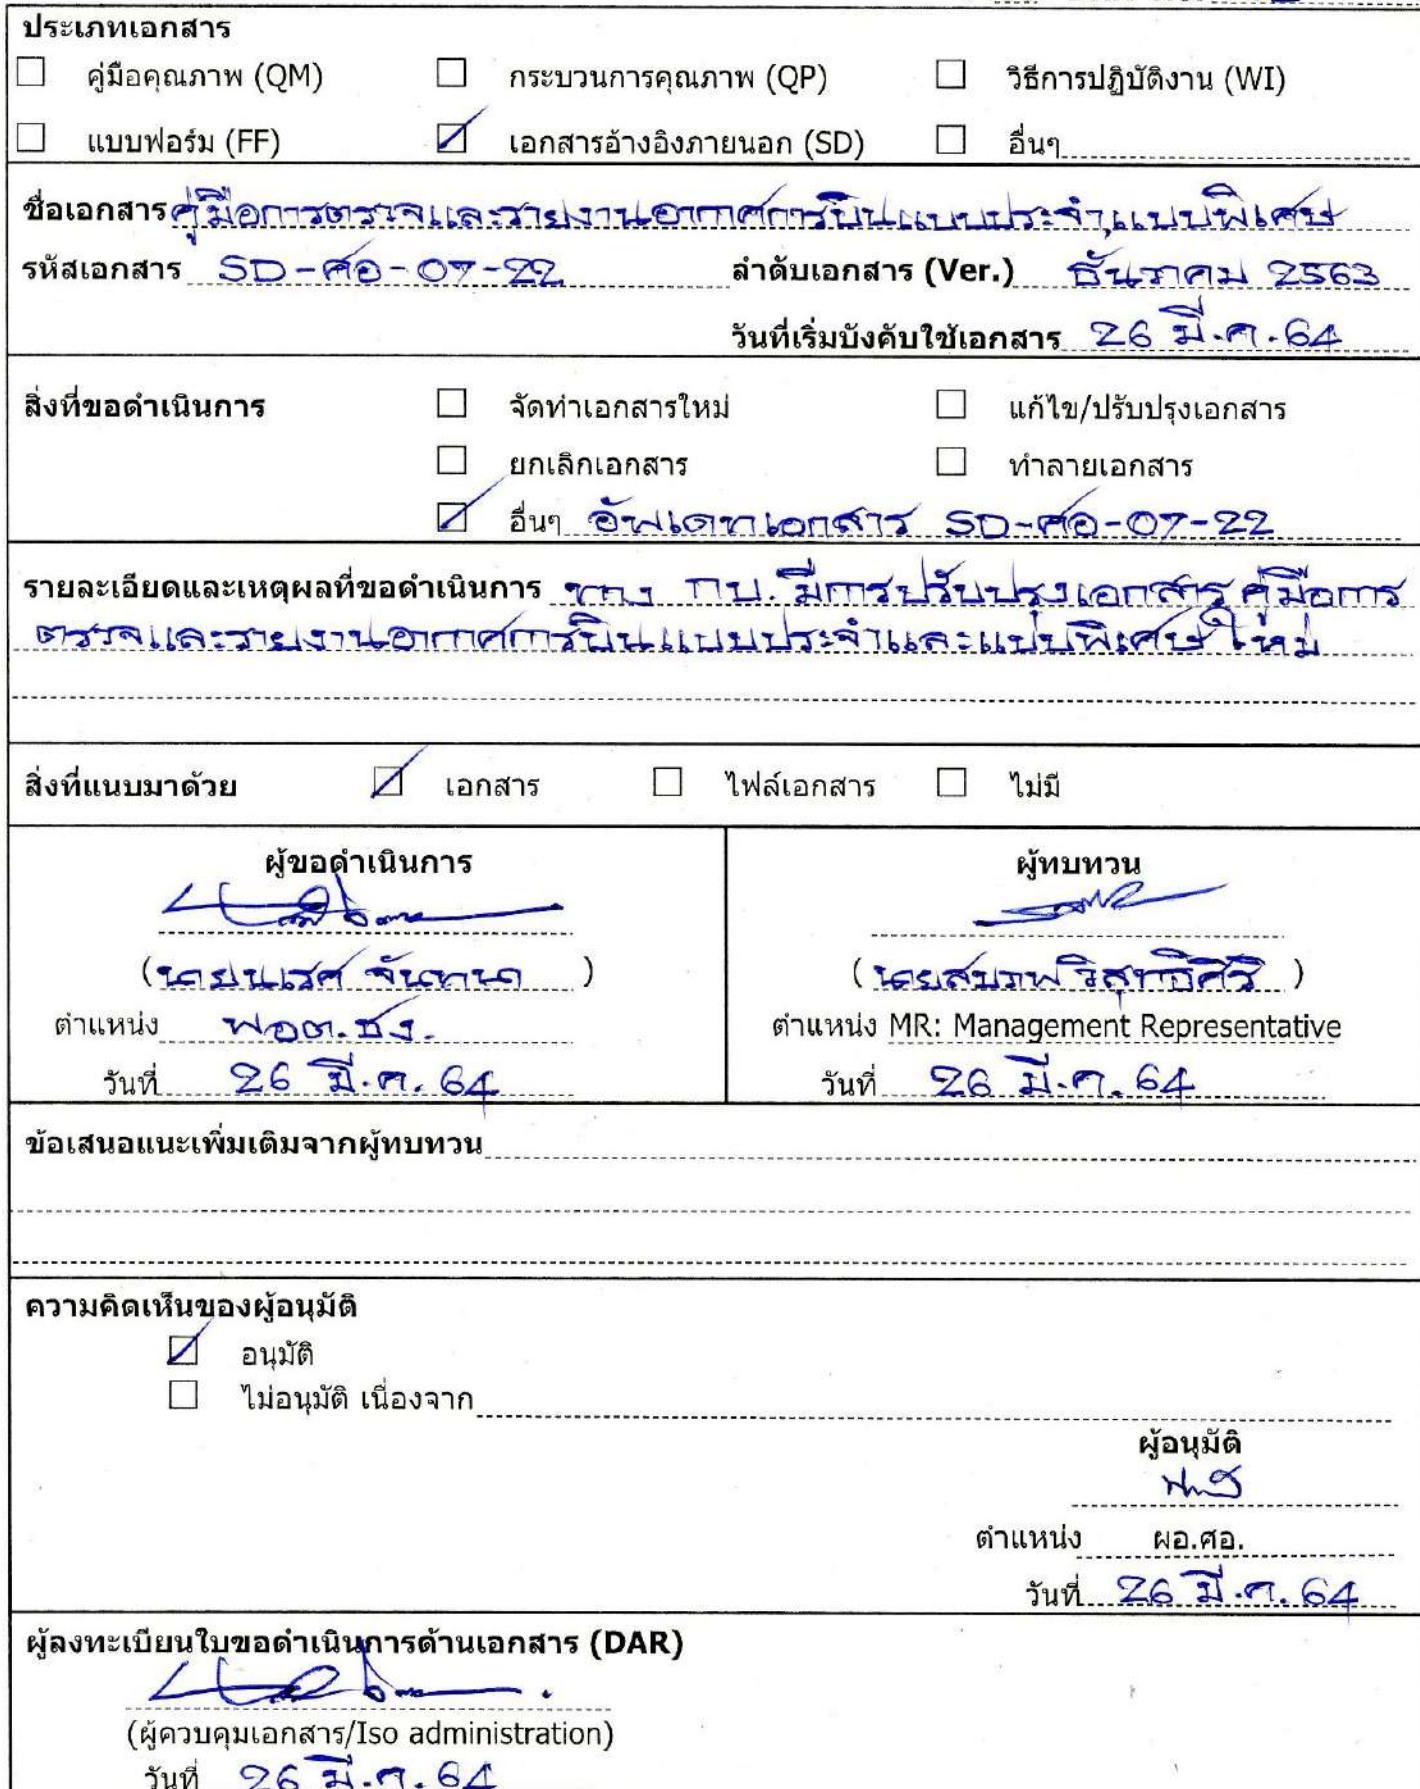 ประเภทเอกสาร
คู่มือคุณภาพ (QM) กระบวนการคุณภาพ (QP) วิธีการปฏิบัติงาน (WI)
แบบฟอร์ม (FF) เอกสารอ้างอิงภายนอก (SD) อื่นๆ
ชื่อเอกสาร คู่มือการตรวจและรายงานอากาศการบินแบบประจำ,แบบพิเศษ
รหัสเอกสาร SD-ศอ-07-22 ลำดับเอกสาร (Ver.) ธันวาคม 2563
วันที่เริ่มบังคับใช้เอกสาร 26 มี.ค.64
สิ่งที่ขอดำเนินการ จัดทำเอกสารใหม่ แก้ไข/ปรับปรุงเอกสาร
ยกเลิกเอกสาร ทำลายเอกสาร
อื่นๆ อัพเดทเอกสาร SD-ศอ-07-22
รายละเอียดและเหตุผลที่ขอดำเนินการ ทาง กบ. มีการปรับปรุงเอกสาร คู่มือการ
ตรวจและรายงานอากาศการบินแบบประจำและแบบพิเศษ ใหม่
สิ่งที่แนบมาด้วย เอกสาร ไฟล์เอกสาร ไม่มี
ผู้ขอดำเนินการ ผู้ทบทวน
(นายนเรศ จันทนา) (นายสบภพ วิสุทธิศิริ)
ตำแหน่ง พอต.ชง. ตำแหน่ง MR: Management Representative
วันที่ 26 มี.ค. 64 วันที่ 26 มี.ค. 64
ข้อเสนอแนะเพิ่มเติมจากผู้ทบทวน
ความคิดเห็นของผู้อนุมัติ
อนุมัติ
ไม่อนุมัติ เนื่องจาก
ผู้อนุมัติ
ตำแหน่ง ผอ.ศอ.
วันที่ 26 มี.ค. 64
ผู้ลงทะเบียนใบขอดำเนินการด้านเอกสาร (DAR)
(ผู้ควบคุมเอกสาร/Iso administration)
วันที่ 26 มี.ค. 64